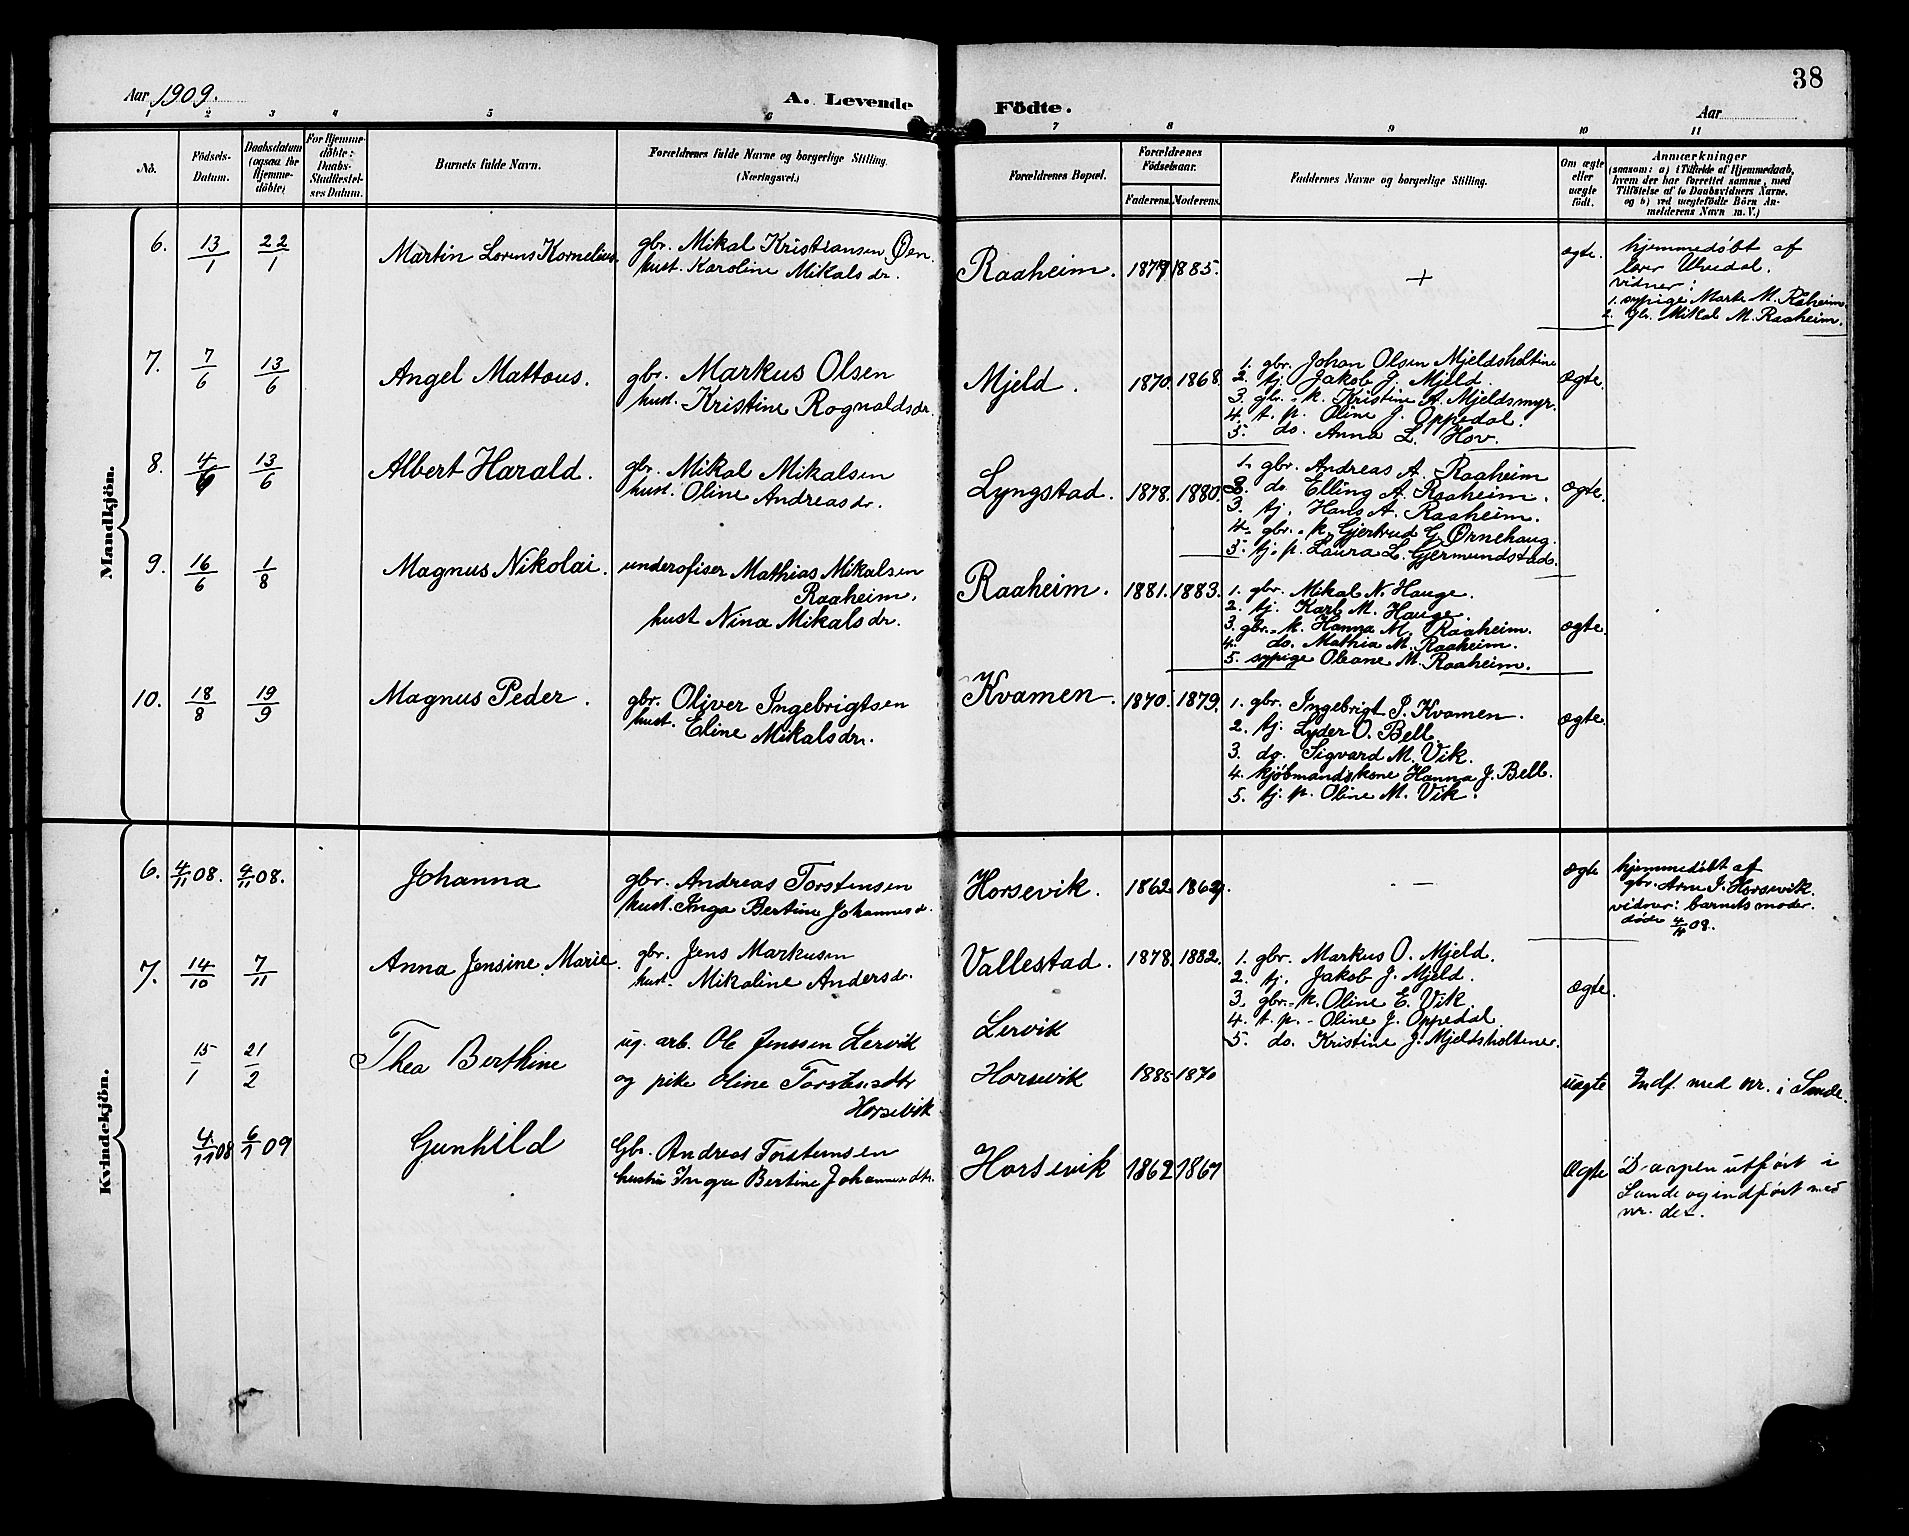 38
Aar 1909.
A. Levende Födte.
Aar
1 2 3 4 5 6 7 8 9 10 11
No.
Födsels-Datum.
Daabsdatum (ogsaa for Hjemmedöbte)
For Hjemmedöbte: Daabs-Stadfestelses Datum.
Barnets fulde Navn.
Forældrenes fulde Navne og borgerlige Stilling. (Næringsvei.)
Forældrenes Bopæl.
Forældrenes Födselsaar.
Faderens. Moderens.
Faddernes Navne og borgerlige Stilling.
Om ægte eller uægte födt.
Anmærkninger
(saasom: a) i Tilfælde af Hjemmedaab,
hvem der har forrettet samme, med
Tilföielse af to Daabsvidners Navne,
og b) ved uægtefödte Börn An-
melderens Navn m. V.)
Mandkjön.
6. 13/1 22/1 Martin Lorens Kornelius. gbr. Mikal Kristiansen Øen.
hust. Karoline Mikalsdr. Raaheim. 1879 1885. + ægte.
hjemmedöbt af
lærer Ulvedal.
vidner:
1. sypige Marte M. Råheim.
2. gbr. Mikal M. Raaheim.
7. 7/6 13/6 Angel Mattous. gbr. Markus Olsen
hust. Kristine Rognaldsdr. Mjeld. 1870. 1868. Ægte.
1. gbr. Johan Olsen Mjeldsholtine
2. tj. Jakob J. Mjeld.
3. gbr.-k. Kristine A. Mjeldsmyr.
4. t. p. Oline J. Oppedal.
5. do. Anna L. Hov.
8. 4/6 13/6 Albert Harald. gbr. Mikal Mikalsen
hust. Oline Andreasdr. Lyngstad. 1878. 1880. Ægte.
1. gbr. Andreas A. Raaheim
2. do. Elling A. Raaheim.
3. tj. Hans A. Raaheim.
4. gbr.-k. Gjertrud G. Ørnehaug.
5. tj. p. Laura L. Gjermundstad.
9. 16/6 1/8 Magnus Nikolai. underofiser Mathias Mikalsen
Raaheim.
hust Nina Mikalsdr. Raaheim. 1881. 1883. Ægte.
1. gbr. Mikal N. Hauge.
2. tj. Karl M. Hauge.
3. gbr.-k. Hanna M. Raaheim.
4. do. Mathia M. Raaheim.
5. sypige Oleane M. Raaheim.
10. 18/8 19/9 Magnus Peder. gbr. Oliver Ingebrigtsen
hust. Eline Mikalsdr. Kvamen. 1870. 1879. Ægte.
1. gbr. Ingebrigt P. Kvamen.
2. tj. Lyder O. Bell.
3. do. Sigvard M. Vik.
4. kjöbmandskone Hanna J. Bell.
5. tj. p. Oline M. Vik.
Kvindekjön.
6. 4/11 08. 4/11 08. Johanna gbr. Andreas Torstensen
hust. Inga Bertine Johannesdr. Horsevik. 1862 1867. — Ægte
hjemmedöbt af
gbr. Arne J. Horsevik.
vidner: barnets moder.
döde 4/11 08.
7. 14/10 7/11 Anna Jensine Marie. gbr. Jens Markusen
hust. Mikaline Andersdr. Vallestad. 1878. 1882. Ægte.
1. gbr. Markus O. Mjeld.
2. tj. Jakob J. Mjeld.
3. gbr.-k. Oline E. Vik.
4. t. p. - Oline J. Oppedal
5. do. Kristine J. Mjeldsholtene.
15/1 21/2 Thea Berthine ug. arb. Ole Jenssen Lervik Lervik
og pike Oline Torstensdtr Horsevik 1885 1870 uægte Indf. med nr. i Sande.
Horsevik
4/11 08 6/1 09 Gunhild Gbr. Andreas Torstensen
hustru Inga Bertine Johannesdtr. Horsevik 1862 1867 Ægte
Daapen utfört i
Sande og indfört med
nr. der.